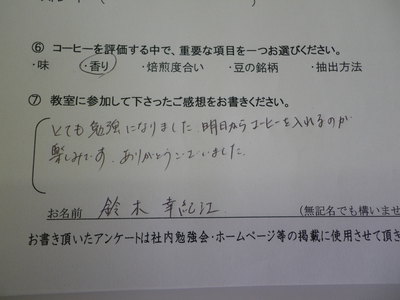 ⑥ コーヒーを評価する中で、重要な項目を一つお選びください。
・味 ・香り ・焙煎度合い ・豆の銘柄 ・抽出方法
⑦ 教室に参加して下さったご感想をお書きください。
とても勉強になりました。明日からコーヒーを入れるのが
楽しみです。ありがとうございました。
お名前 鈴木 幸紀江 (無記名でも構いませ
お書き頂いたアンケートは社内勉強会・ホームページ等の掲載に使用させて頂き